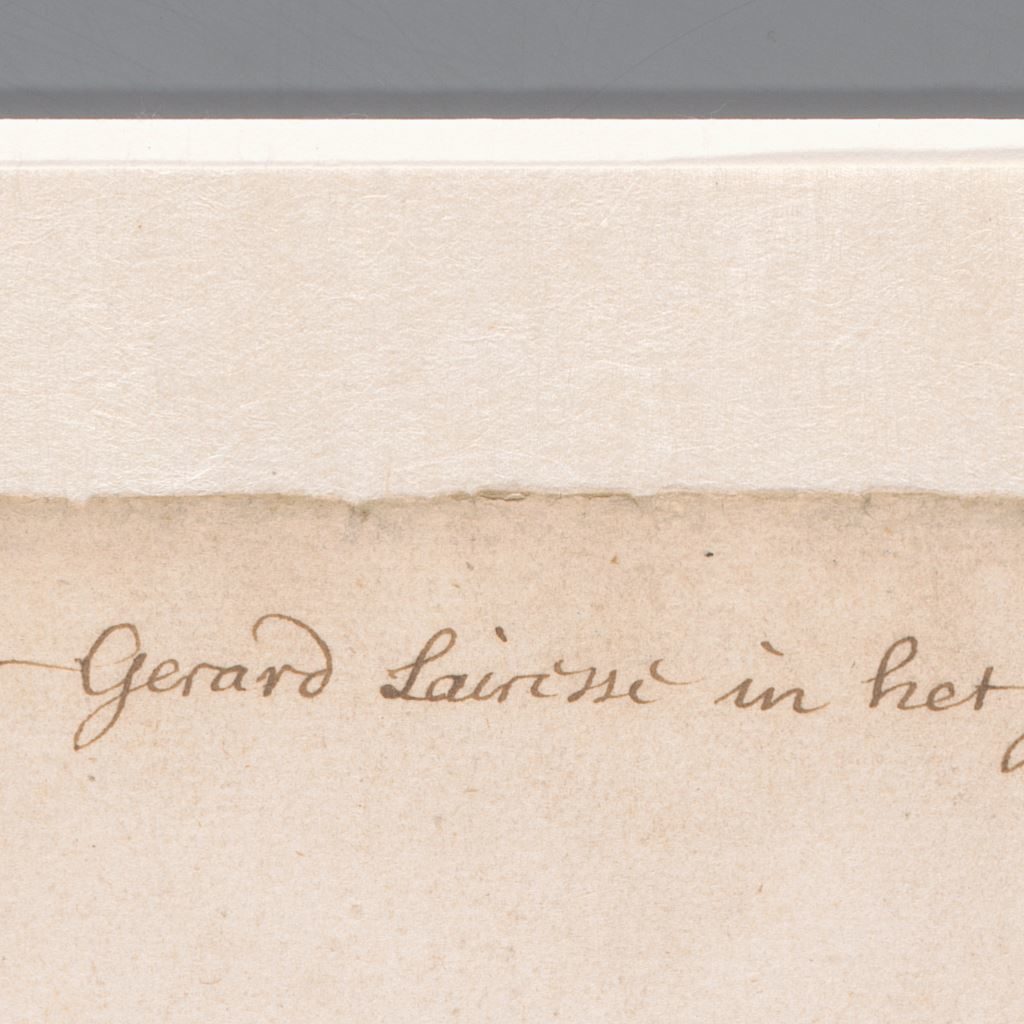 Gerard Lairesse in het